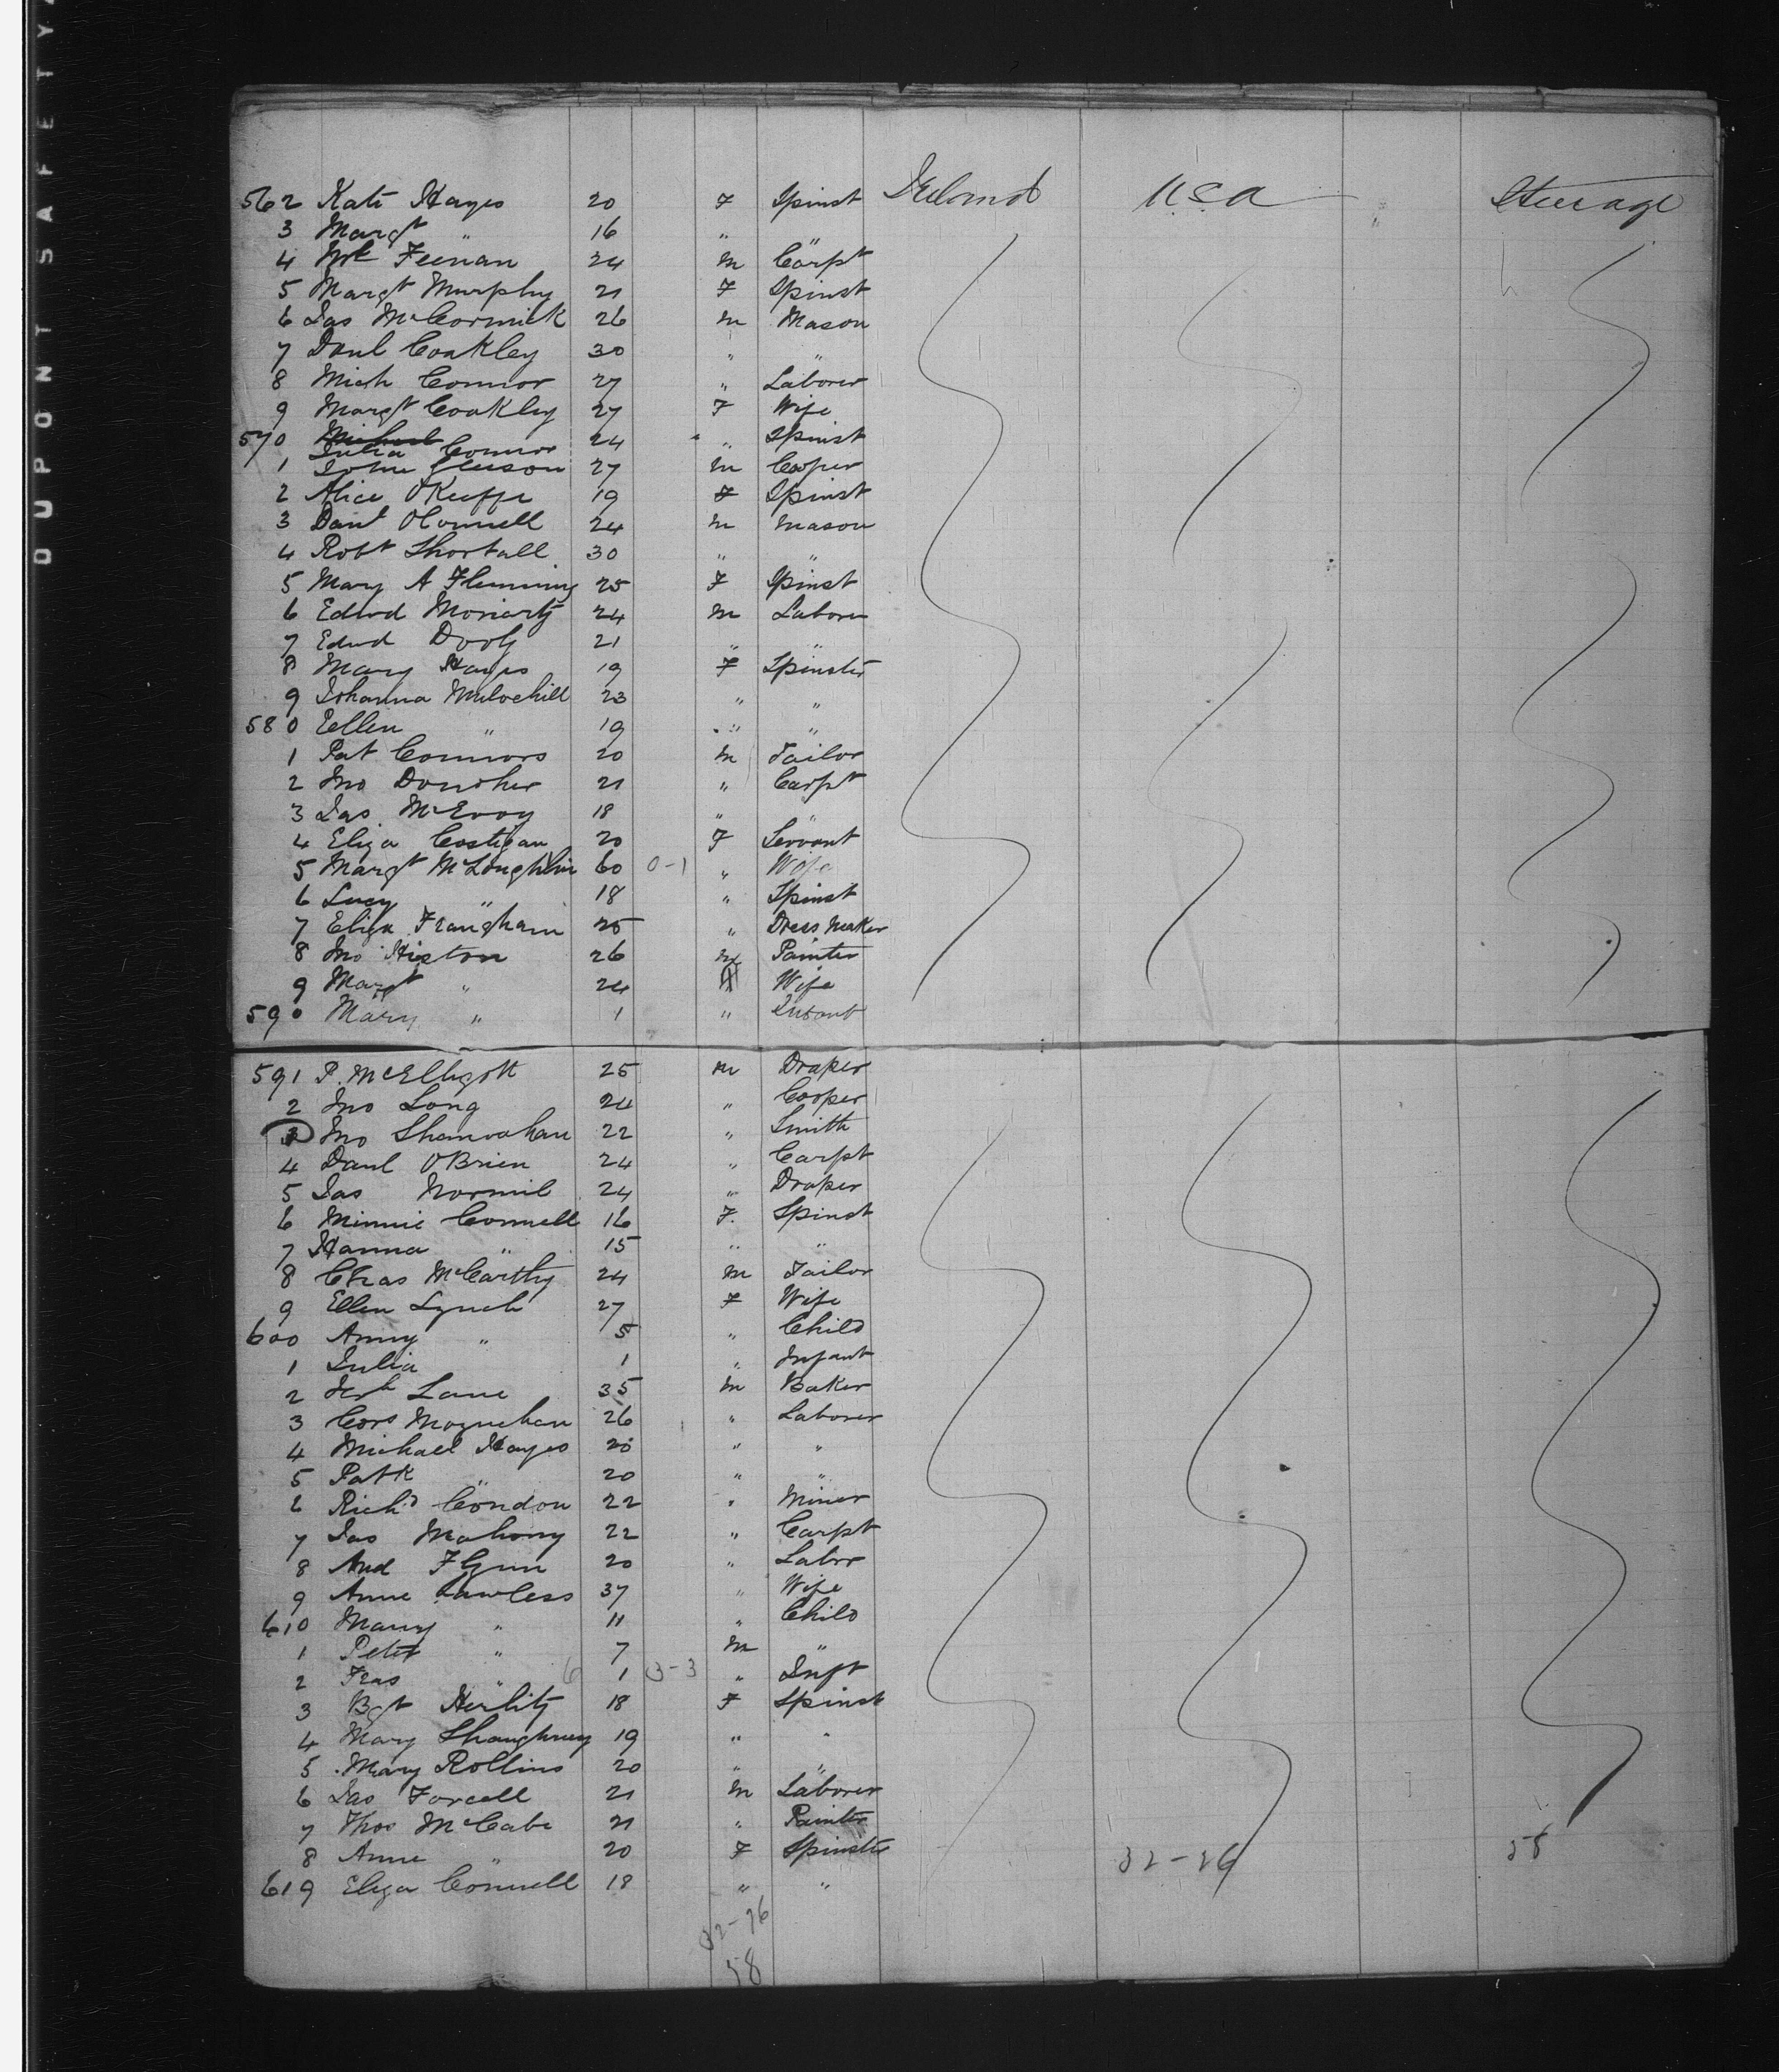 DUPONT SAFETY
562 Kate Hayes 20 F Spinst Ireland USA Steerage
3 Margt " 16 " "
4 Feenan 24 m Carpt
5 Margt Murphy 21 F Spinst
6 Jas McCormick 26 m Mason
7 Danl Coakley 30 " "
8 Mich Connor 27 " Laborer
9 Margt Coakley 27 F Wife
570 Michael Julia Connor 24 " Spinst
1 John Gleeson 27 m Cooper
2 Alice O'Keeffe 19 F Spinst
3 Danl O'Connell 24 m Mason
4 Robt Shortall 30 " "
5 Mary A Flemming 25 F Spinst
6 Edwd Moriarty 24 m Laborer
7 Edwd Dooly 21 " "
8 Mary Hayes 19 F Spinster
9 Johanna Mulvehill 23 " "
580 Ellen " 19 " "
1 Pat Connors 20 m Tailor
2 Jno Donoher 21 " Carpt
3 Jas. McEvoy 18 " "
4 Eliza Costigan 20 F Servant
5 Margt McLoughlin 60 0-1 " Wife
6 Lucy " 18 " Spinst
7 Eliza Frangham 25 " Dress Maker
8 Jno Histon 26 m Painter
9 Margt " 24 Wife
590 Mary " 1 " Infant
591 P. McElligott 25 m Draper
2 Jno Long 24 " Cooper
3 Jno Shanvahan 22 " Smith
4 Danl O'Brien 24 " Carpt
5 Jas Normil 24 " Draper
6 Minnie Connell 16 F. Spinst
7 Hanna " 15 " "
8 Chas McCarthy 24 m Tailor
9 Ellen Lynch 27 F Wife
600 Anny " 5 " Child
1 Julia 1 " Infant
2 Lane 35 m Baker
3 Cors Moynehan 26 " Laborer
4 Michael Hayes 20 " "
5 Patk " 20 " "
6 Richd Condon 22 " Miner
7 Jas Mahony 22 " Carpt
8 And Flynn 20 " Labrr
9 Anne Lawless 37 " Wife
610 Mary " 11 " Child
1 Peter " 7 m "
2 Fras " 6 1 3-3 " Inft
3 Bgt Herlity 18 F Spinst
4 Mary Shaughnesy 19 " "
5 Mary Rollins 20 " "
6 Jas Forcell 21 m Laborer
7 Thos McCabe 21 " Painter
8 Anne " 20 F Spinster 32-26 58
619 Eliza Connell 18 " "
32-26
58